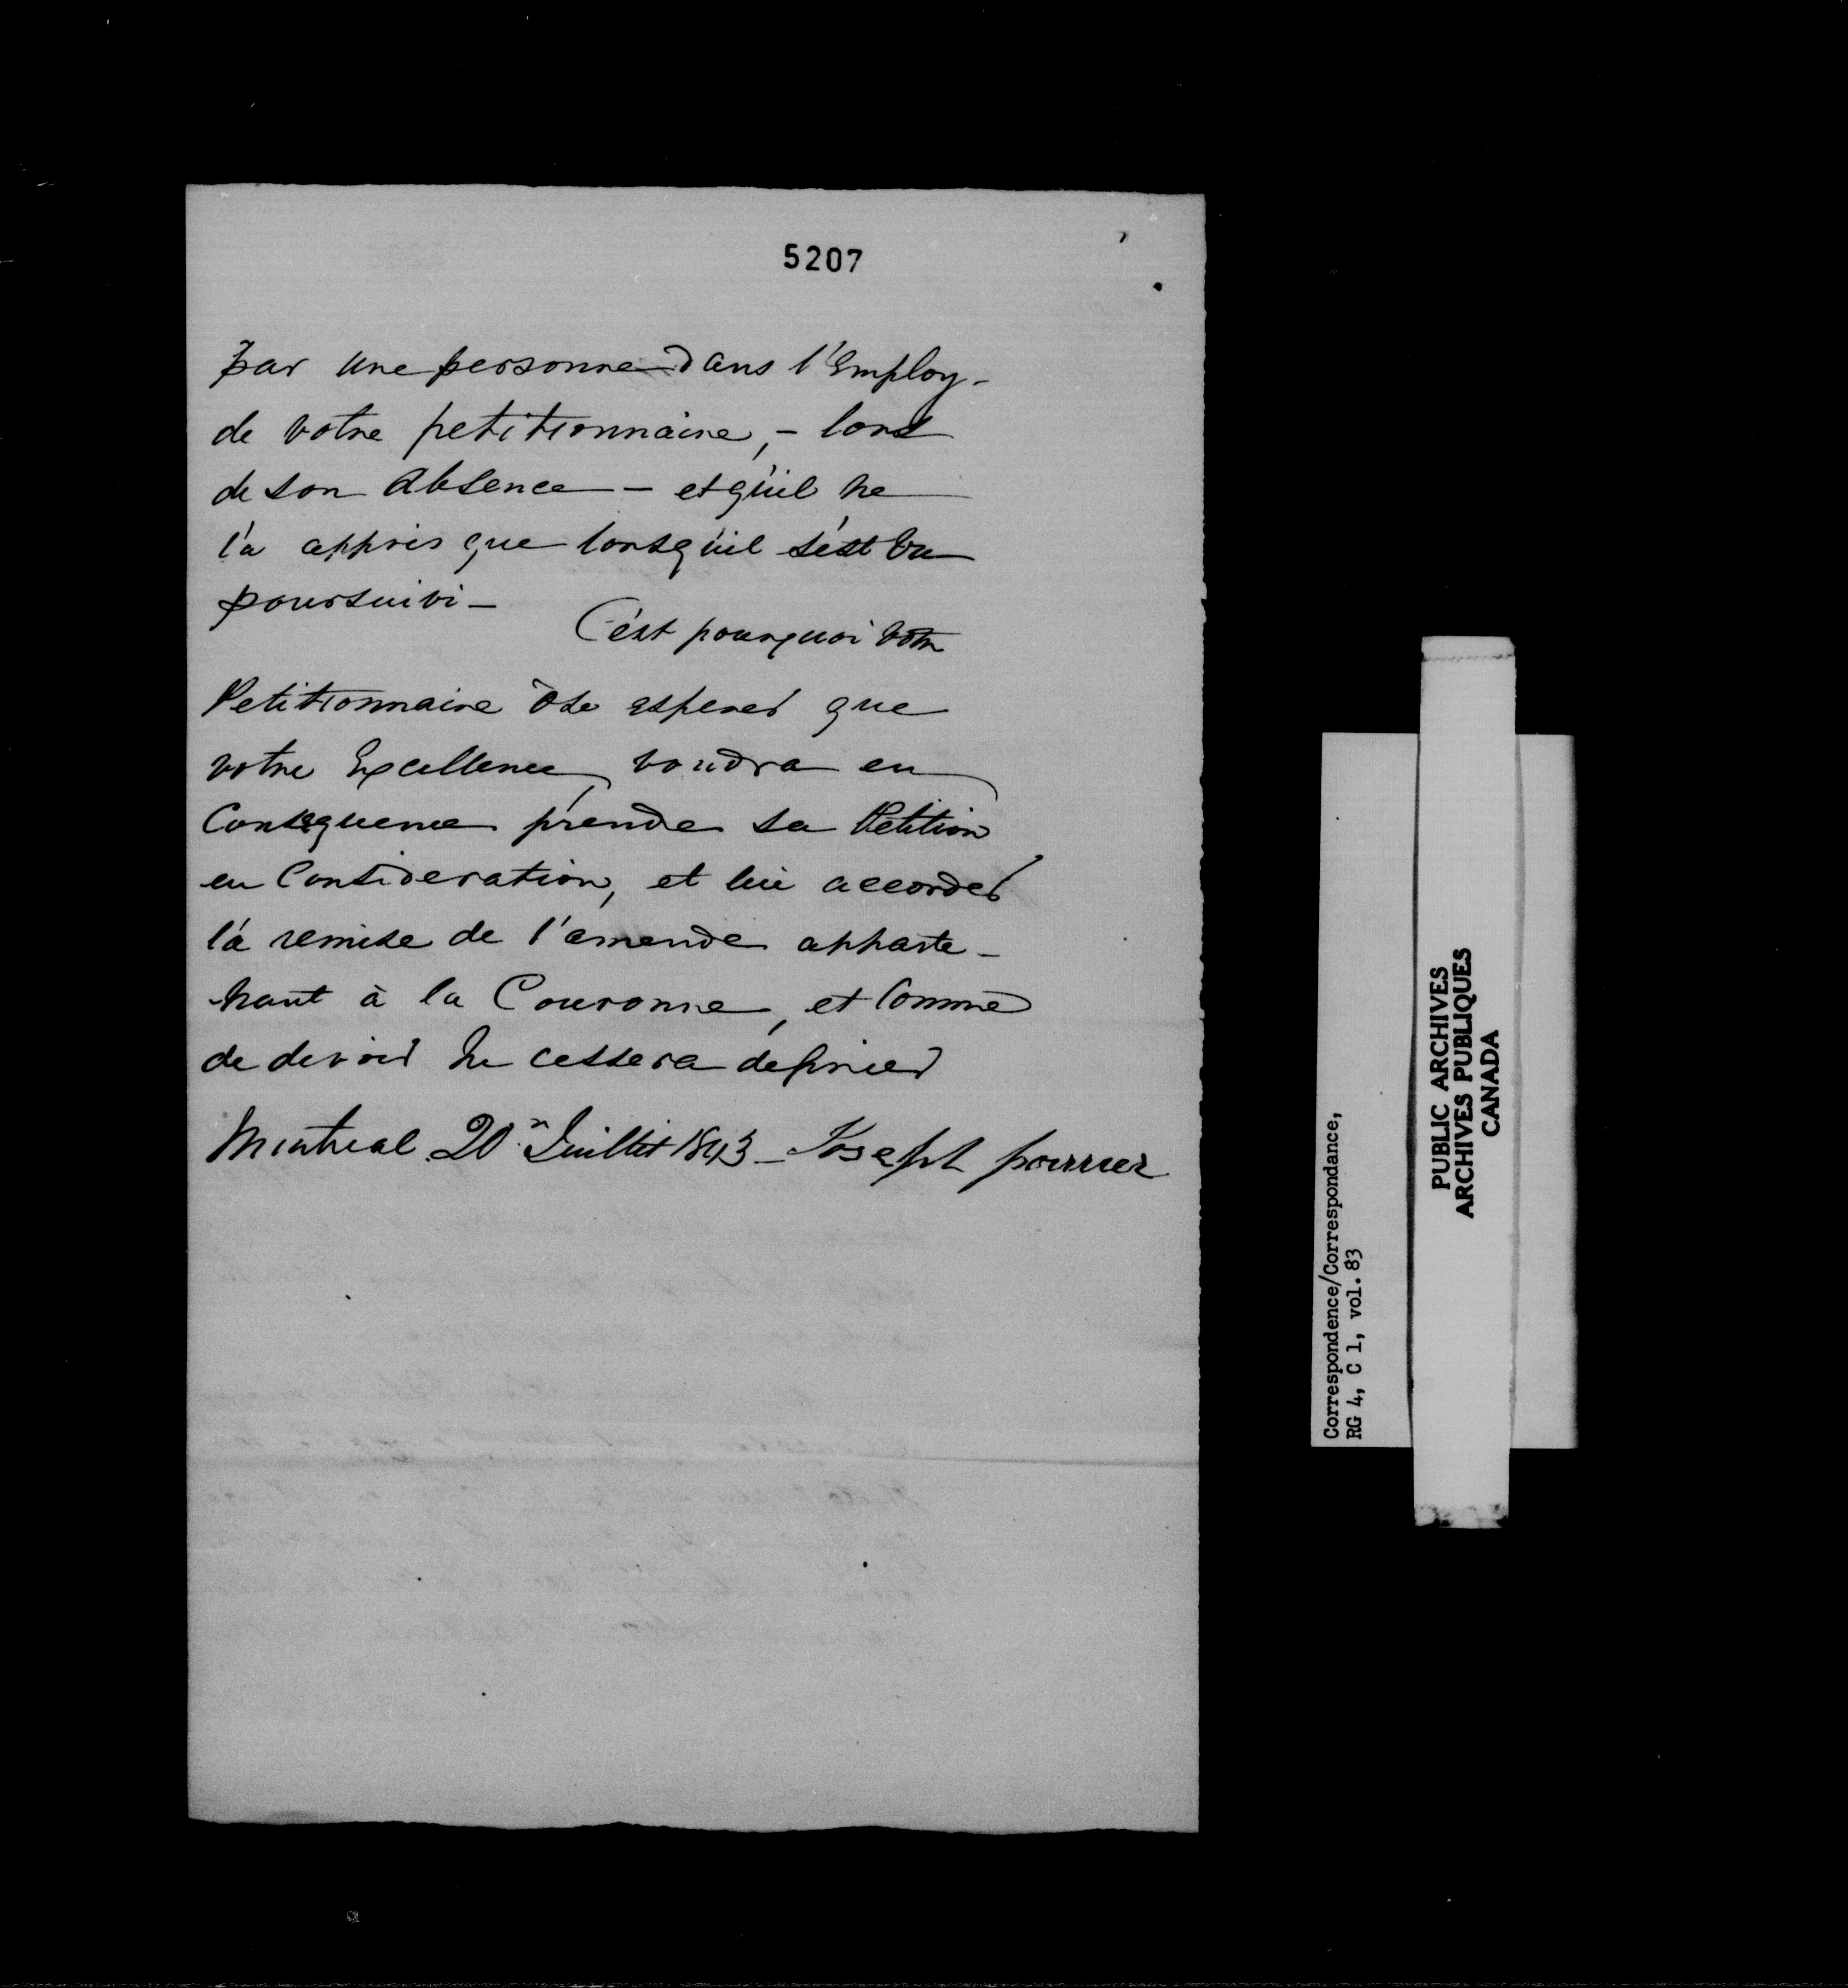 5207
par une personne dans l'Employ-
de votre petitionnaire, - lors
de son Absence - et qu'il ne
l'a appris que lorsqu'il s'est vu
poursuivi -
C'est pourquoi votre
Petitionnaire ôse esperer que
votre Excellence, voudra en
Consequence prendre sa Petition
en Consideration, et lui accorder
là remise de l'amende apparte-
-nant à la Couronne, et Comme
de devoir ne cessera de prier
Montreal 20 Juillet 1843 - Joseph
Correspondence/Correspondance,
RG 4, C 1, vol. 83
PUBLIC ARCHIVES
ARCHIVES PUBLIQUES
CANADA